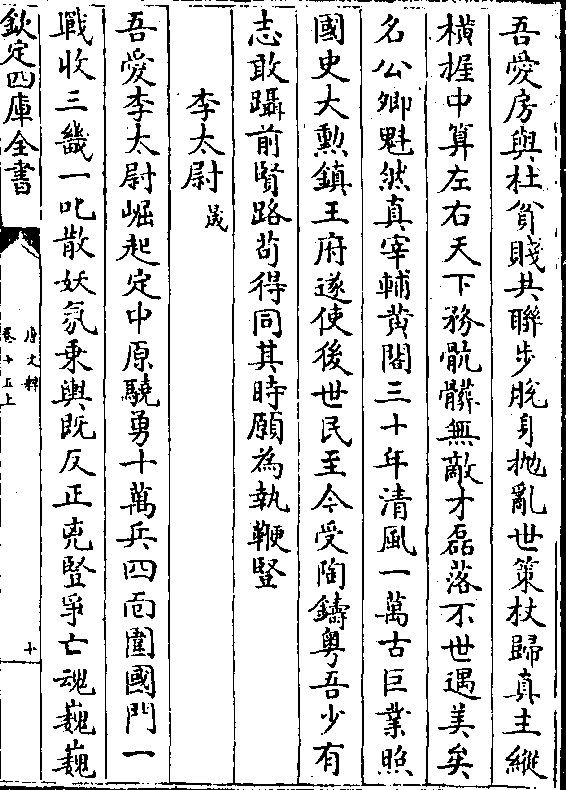 吾愛房與杜貧賤共聯步脫身抛亂世策杖歸真主縱
橫握中算左右天下務骯髒無敵才磊落不世遇美矣
名公卿魁然真宰輔黃閣三十年清風一萬古巨業照
國史大勲鎮王府遂使後世民至今受陶鑄粤吾少有
志敢躡前賢路茍得同其時願為執鞭竪
李太尉晟
吾愛李太尉崛起定中原驍勇十萬兵四面圍國門一
戰收三畿一叱散妖氛乗輿既反正兇竪爭亡魂巍巍
欽定四庫全書
唐文粹
卷十五上
十